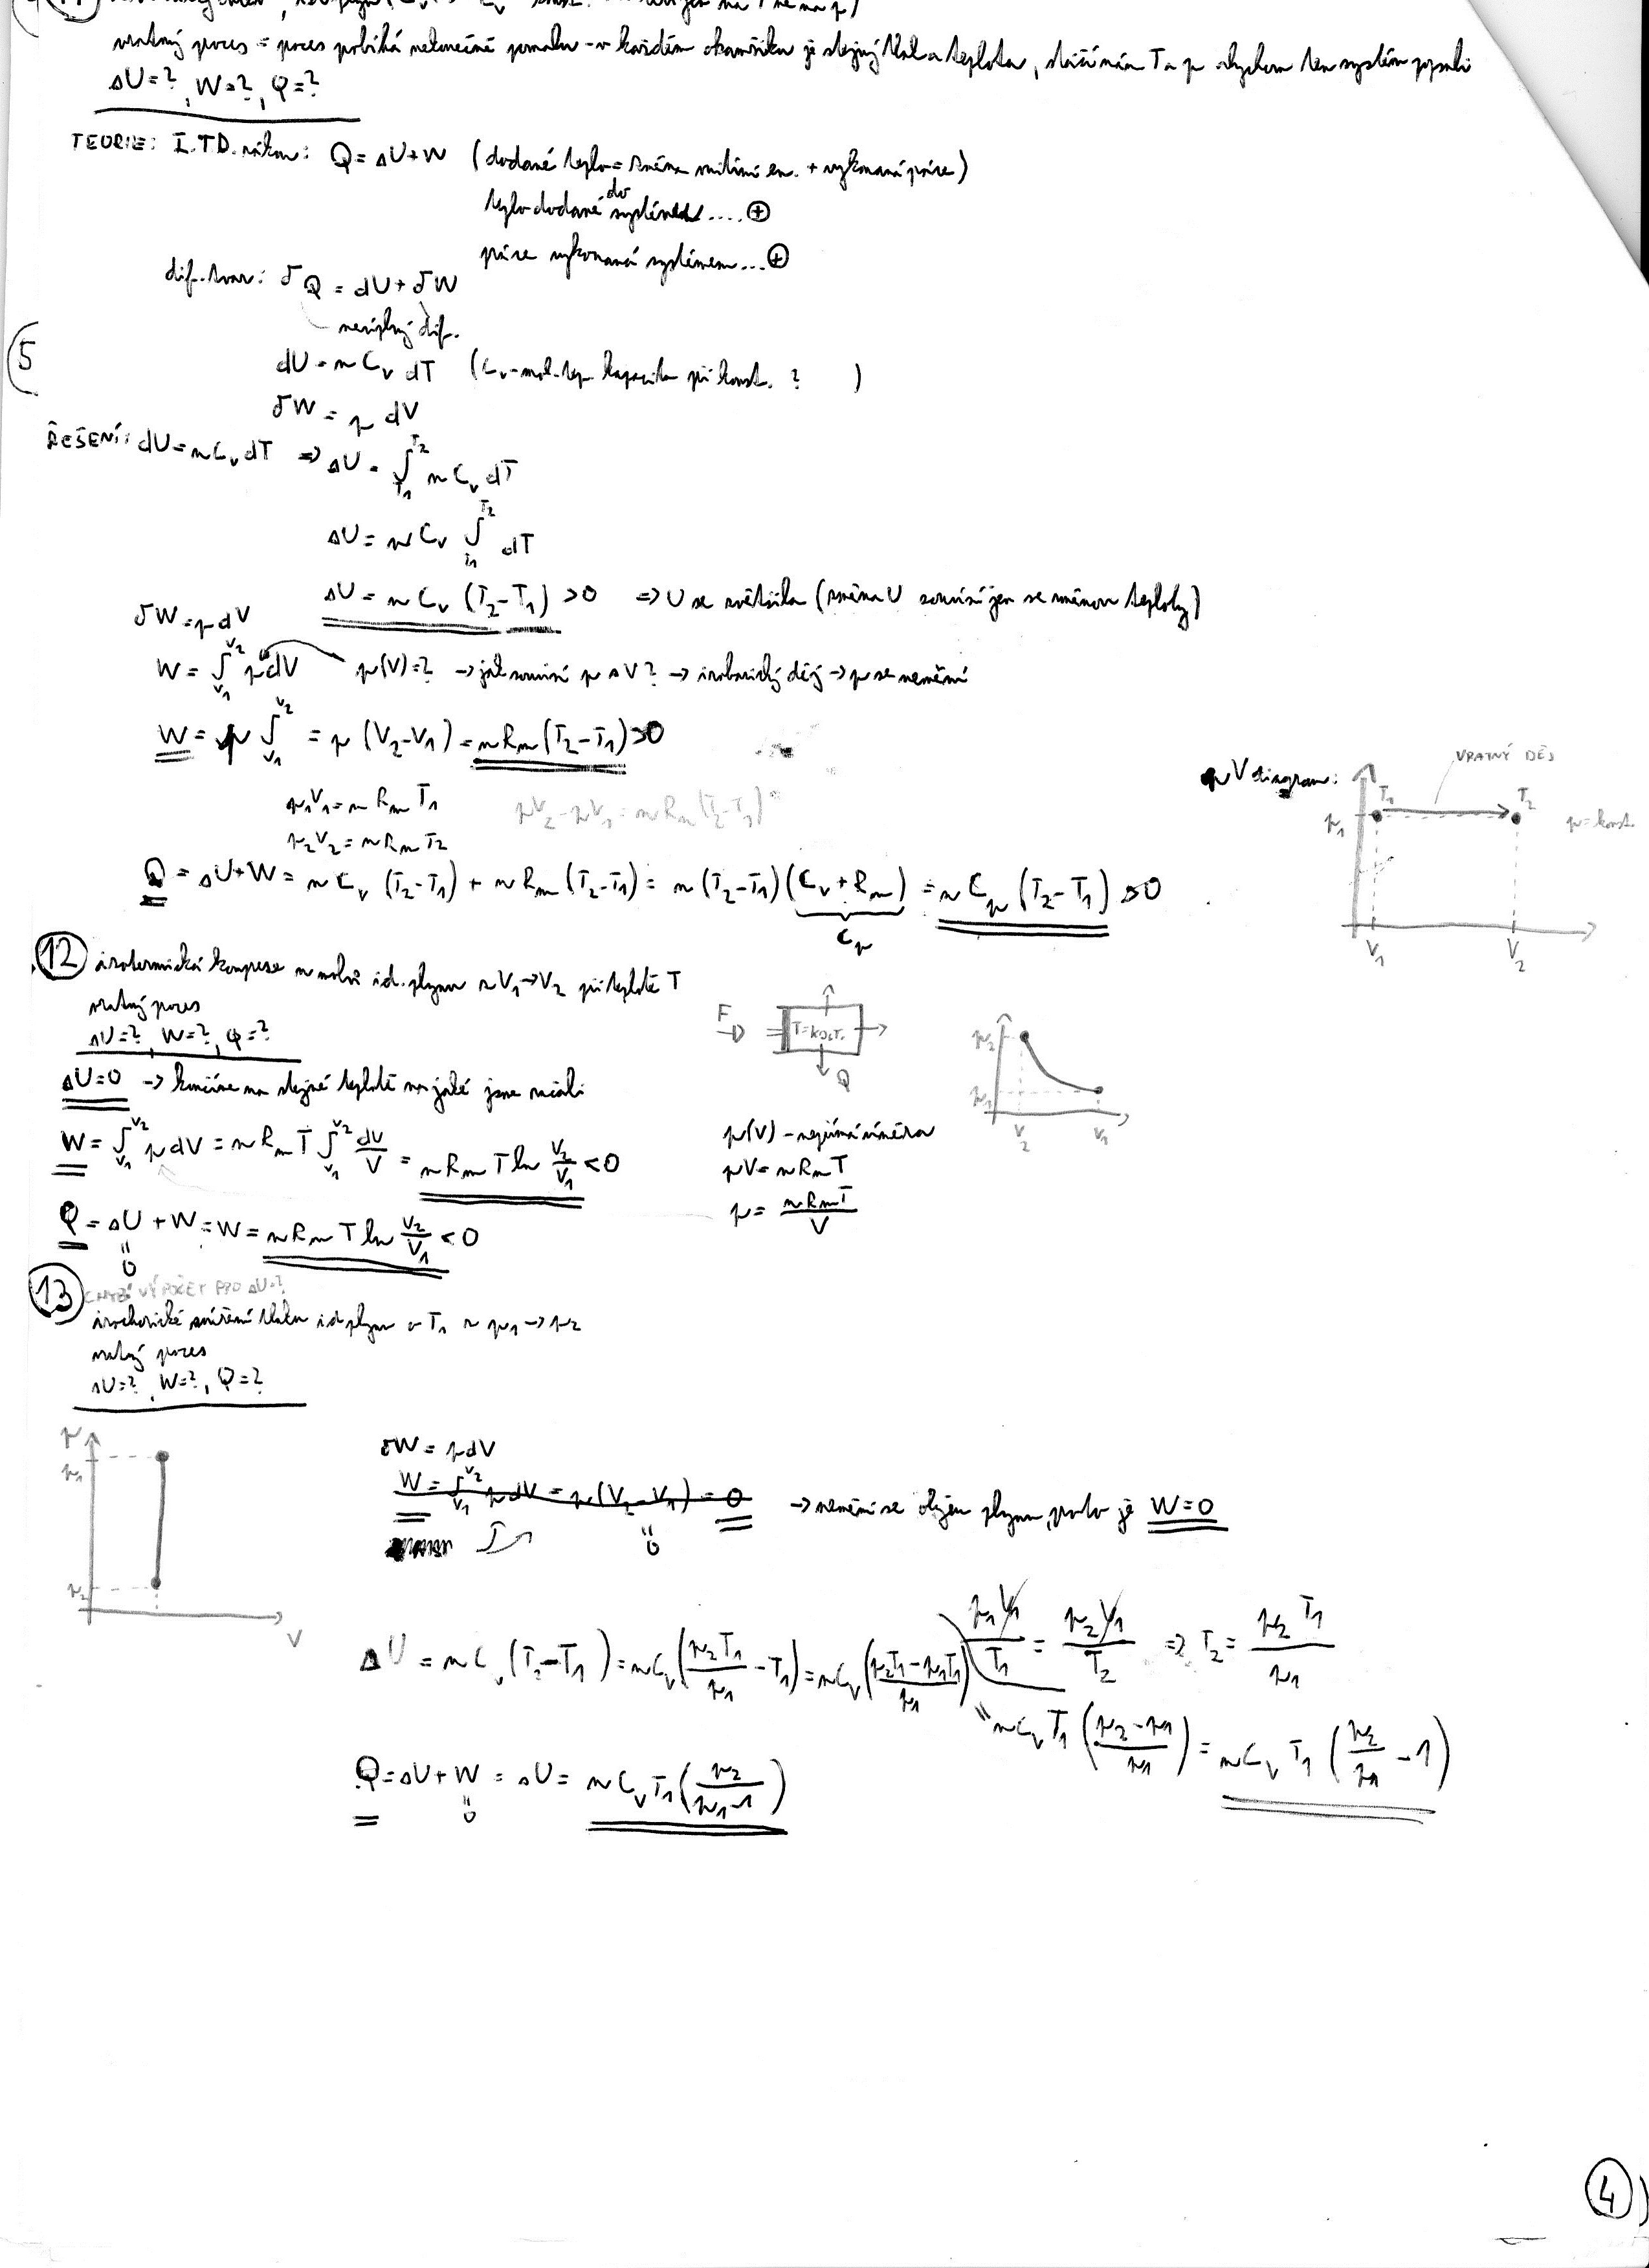 vratný proces = proces probíhá nekonečně pomalu - v každém okamžiku je stejný tlak a teplota, stačí nám T a p abychom ten systém popsali
ΔU=?, W=?, Q=?
TEORIE: I.TD. zákon: Q = ΔU+W (dodané teplo = změna vnitřní en. + vykonaná práce)
teplo dodané do systému .... ⊕
práce vykonaná systémem... ⊕
dif. tvar: δQ = dU + δW
neúplný dif.
5
dU = n Cv dT (Cv - mol. tep. kapacita při konst. ? )
δW = p dV
ŘEŠENÍ: dU = n Cv dT ⇒ ΔU = ∫_T1^T2 n Cv dT
ΔU = n Cv ∫_T1^T2 dT
ΔU = n Cv (T2-T1) > 0 ⇒ U se zvětšila (změna U souvisí jen se změnou teploty)
δW = p dV
W = ∫_V1^V2 p dV p(V)=? → jak souvisí p a V? → izobarický děj → p se nemění
W = p ∫_V1^V2 = p (V2-V1) = n Rm (T2-T1) > 0
p1V1 = n Rm T1
pV2 - pV1 = n Rm (T2-T1)
p2V2 = n Rm T2
Q = ΔU+W = n Cv (T2-T1) + n Rm (T2-T1) = n (T2-T1)(Cv+Rm) = n Cp (T2-T1) > 0
Cp
pV diagram:
VRATNÝ DĚJ
T1 T2
p1
p = konst.
V1 V2
12 izotermická komprese n molů id. plynu z V1→V2 při teplotě T
vratný proces
ΔU=?, W=?, Q=?
F
T=konst.
Q
p2
p1
V2 V1
ΔU=0 → končíme na stejné teplotě na jaké jsme začali
W = ∫_V1^V2 p dV = n Rm T ∫_V1^V2 dV/V = n Rm T ln V2/V1 < 0
p(V) - nepřímá úměra
pV = n Rm T
p = n Rm T / V
Q = ΔU + W = W = n Rm T ln V2/V1 < 0
0
13 CHYBÍ VÝPOČET PRO ΔU=?
izochorické snížení tlaku id plynu o T1 z p1→p2
vratný proces
ΔU=?, W=?, Q=?
p
p1
p2
V
δW = p dV
W = ∫_V1^V2 p dV = p(V2-V1) = 0 → nemění se objem plynu, proto je W=0
0
p1V1/T1 = p2V1/T2 ⇒ T2 = p2 T1/p1
ΔU = n Cv (T2-T1) = n Cv (p2T1/p1 - T1) = n Cv (p2T1-p1T1/p1)
= n Cv T1 (p2-p1/p1) = n Cv T1 (p2/p1 - 1)
Q = ΔU + W = ΔU = n Cv T1 (p2/p1-1)
0
4